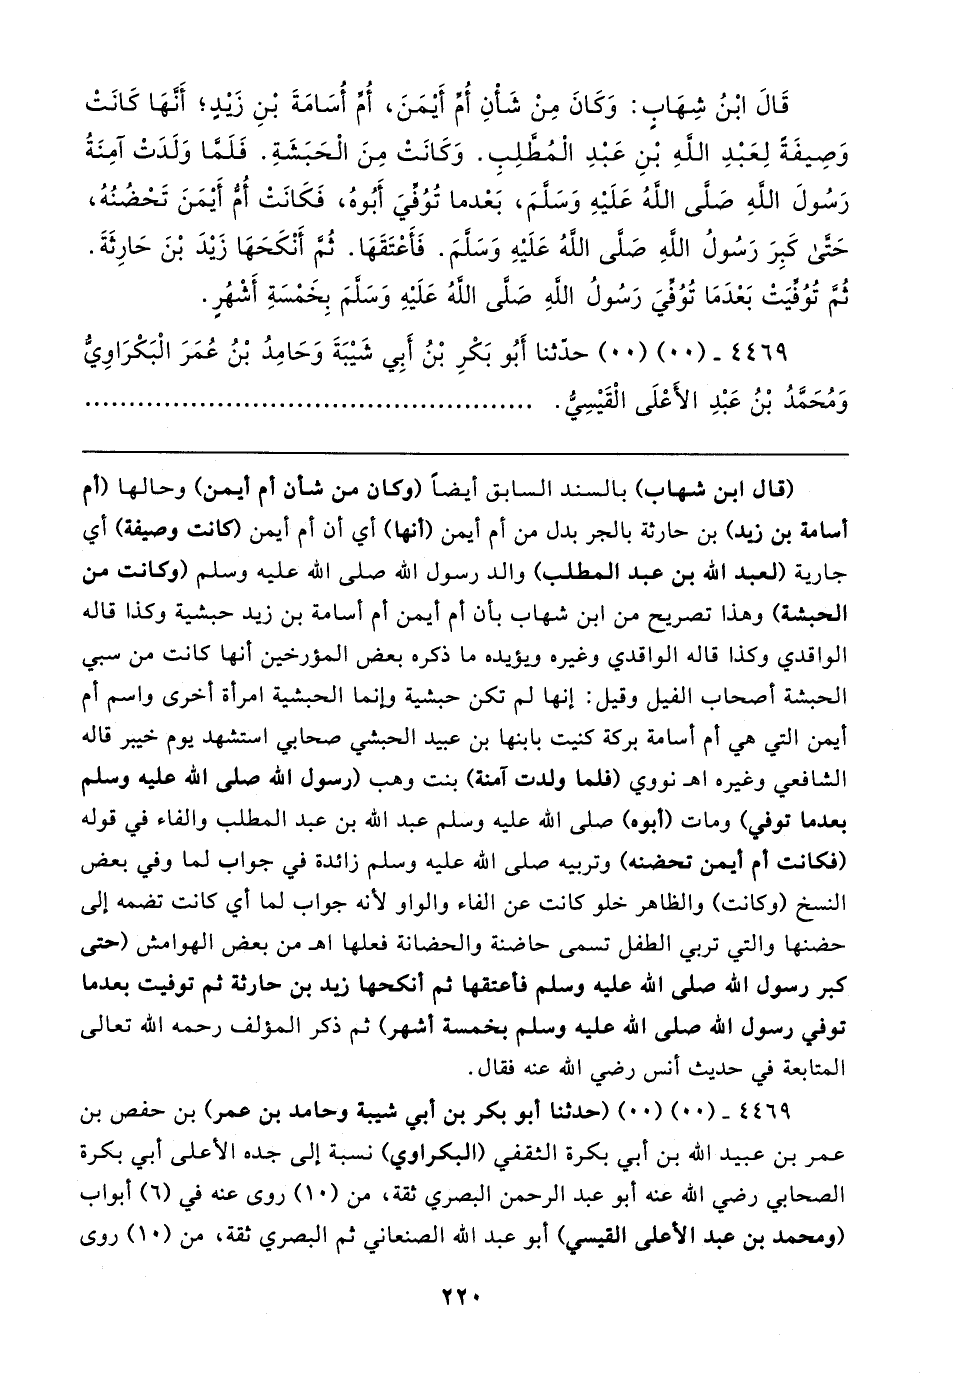 قَالَ ابْنُ شِهَابٍ: وَكَانَ مِنْ شَأْنِ أُمِّ أَيْمَنَ، أُمِّ أُسَامَةَ بْنِ زَيْدٍ؛ أَنَّهَا كَانَتْ
وَصِيفَةً لِعَبْدِ اللَّهِ بْنِ عَبْدِ الْمُطَّلِبِ. وَكَانَتْ مِنَ الْحَبَشَةِ. فَلَمَّا وَلَدَتْ آمِنَةُ
رَسُولَ اللَّهِ صَلَّى اللَّهُ عَلَيْهِ وَسَلَّمَ، بَعْدما تُوُفِّيَ أَبُوهُ، فَكَانَتْ أُمُّ أَيْمَنَ تَحْضُنُهُ،
حَتَّىٰ كَبِرَ رَسُولُ اللَّهِ صَلَّى اللَّهُ عَلَيْهِ وَسَلَّمَ. فَأَعْتَقَهَا. ثُمَّ أَنْكَحَهَا زَيْدَ بْنَ حَارِثَةَ.
ثُمَّ تُوُفِّيَتْ بَعْدَمَا تُوُفِّيَ رَسُولُ اللَّهِ صَلَّى اللَّهُ عَلَيْهِ وَسَلَّمَ بِخَمْسَةِ أَشْهُرٍ.
٤٤٦٩ - (٠٠) (٠٠) حدّثنا أَبُو بَكْرِ بْنُ أَبِي شَيْبَةَ وَحَامِدُ بْنُ عُمَرَ الْبَكْرَاوِيُّ
وَمُحَمَّدُ بْنُ عَبْدِ الأَعْلَى الْقَيْسِيُّ. ..................................................
(قال ابن شهاب) بالسند السابق أيضاً (وكان من شأن أم أيمن) وحالها (أم
أسامة بن زيد) بن حارثة بالجر بدل من أم أيمن (أنها) أي أن أم أيمن (كانت وصيفة) أي
جارية (لعبد الله بن عبد المطلب) والد رسول الله صلى الله عليه وسلم (وكانت من
الحبشة) وهذا تصريح من ابن شهاب بأن أم أيمن أم أسامة بن زيد حبشية وكذا قاله
الواقدي وكذا قاله الواقدي وغيره ويؤيده ما ذكره بعض المؤرخين أنها كانت من سبي
الحبشة أصحاب الفيل وقيل: إنها لم تكن حبشية وإنما الحبشية امرأة أخرى واسم أم
أيمن التي هي أم أسامة بركة كنيت بابنها بن عبيد الحبشي صحابي استشهد يوم خيبر قاله
الشافعي وغيره اهـ نووي (فلما ولدت آمنة) بنت وهب (رسول الله صلى الله عليه وسلم
بعدما توفي) ومات (أبوه) صلى الله عليه وسلم عبد الله بن عبد المطلب والفاء في قوله
(فكانت أم أيمن تحضنه) وتربيه صلى الله عليه وسلم زائدة في جواب لما وفي بعض
النسخ (وكانت) والظاهر خلو كانت عن الفاء والواو لأنه جواب لما أي كانت تضمه إلى
حضنها والتي تربي الطفل تسمى حاضنة والحضانة فعلها اهـ من بعض الهوامش (حتى
كبر رسول الله صلى الله عليه وسلم فأعتقها ثم أنكحها زيد بن حارثة ثم توفيت بعدما
توفي رسول الله صلى الله عليه وسلم بخمسة أشهر) ثم ذكر المؤلف رحمه الله تعالى
المتابعة في حديث أنس رضي الله عنه فقال.
٤٤٦٩ - (٠٠) (٠٠) (حدثنا أبو بكر بن أبي شيبة وحامد بن عمر) بن حفص بن
عمر بن عبيد الله بن أبي بكرة الثقفي (البكراوي) نسبة إلى جده الأعلى أبي بكرة
الصحابي رضي الله عنه أبو عبد الرحمن البصري ثقة، من (١٠) روى عنه في (٦) أبواب
(ومحمد بن عبد الأعلى القيسي) أبو عبد الله الصنعاني ثم البصري ثقة، من (١٠) روى
٢٢٠